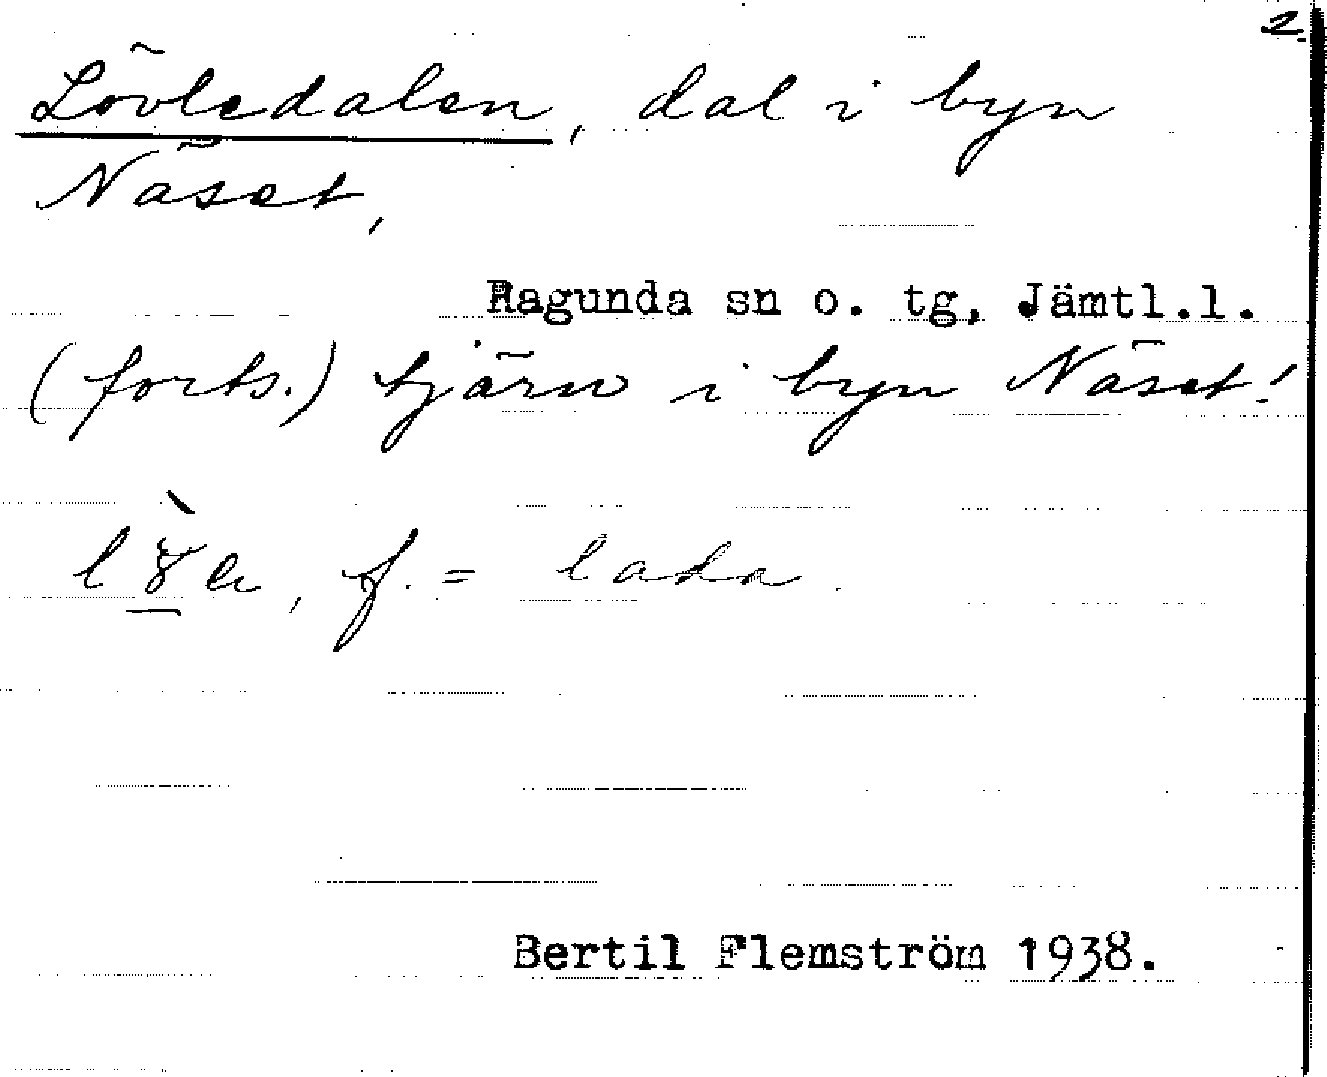 2.
Lövledalen, dal i byn
Näset,
Ragunda sn o. tg, Jämtl.l.
(forts.) tjärn i byn Näset!
f. = lada.
Bertil Flemström 1938.